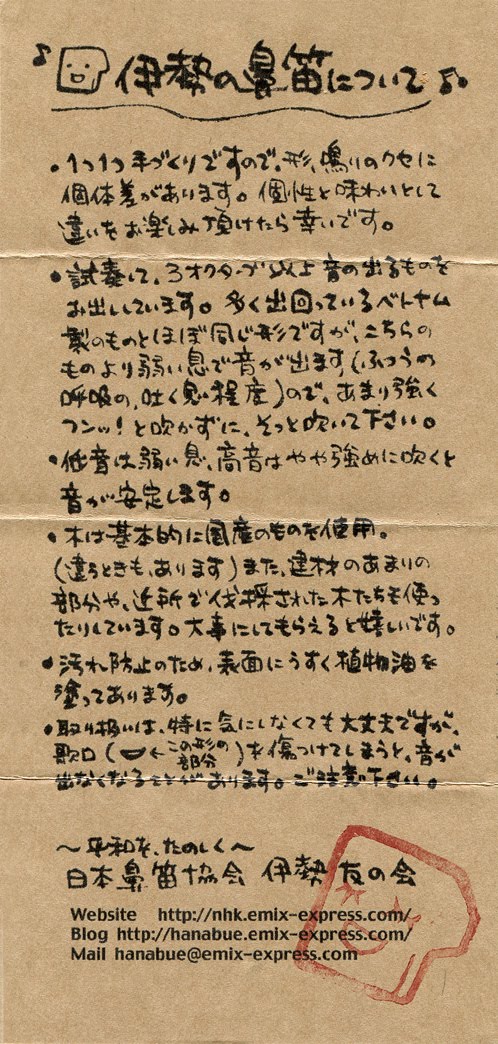 ♪ 伊勢の鼻笛について ♪
・1つ1つ手づくりですので、形、鳴りのクセに
個体差があります。個性と味わいとして
違いをお楽しみ頂けたら幸いです。
・試奏して、3オクターブ以上音の出るものを
お出ししています。多く出回っているベトナム
製のものとほぼ同じ形ですが、こちらの
ものより弱い息で音が出ます(ふつうの
呼吸の、吐く息程度)ので、あまり強く
フンッ!と吹かずに、そっと吹いて下さい。
・低音は弱い息、高音はやや強めに吹くと
音が安定します。
・木は基本的に国産のものを使用。
(違うときも、あります)また、建材のあまりの
部分や、近所で伐採された木たちも使っ
たりしています。大事にしてもらえると嬉しいです。
・汚れ防止のため、表面にうすく植物油を
塗ってあります。
・取り扱いは、特に気にしなくても大丈夫ですが、
歌口(←この形の部分)を傷つけてしまうと、音が
出なくなることがあります。ご注意下さい。
〜平和を、たのしく〜
日本鼻笛協会 伊勢友の会
Website http://nhk.emix-express.com/
Blog http://hanabue.emix-express.com/
Mail hanabue@emix-express.com